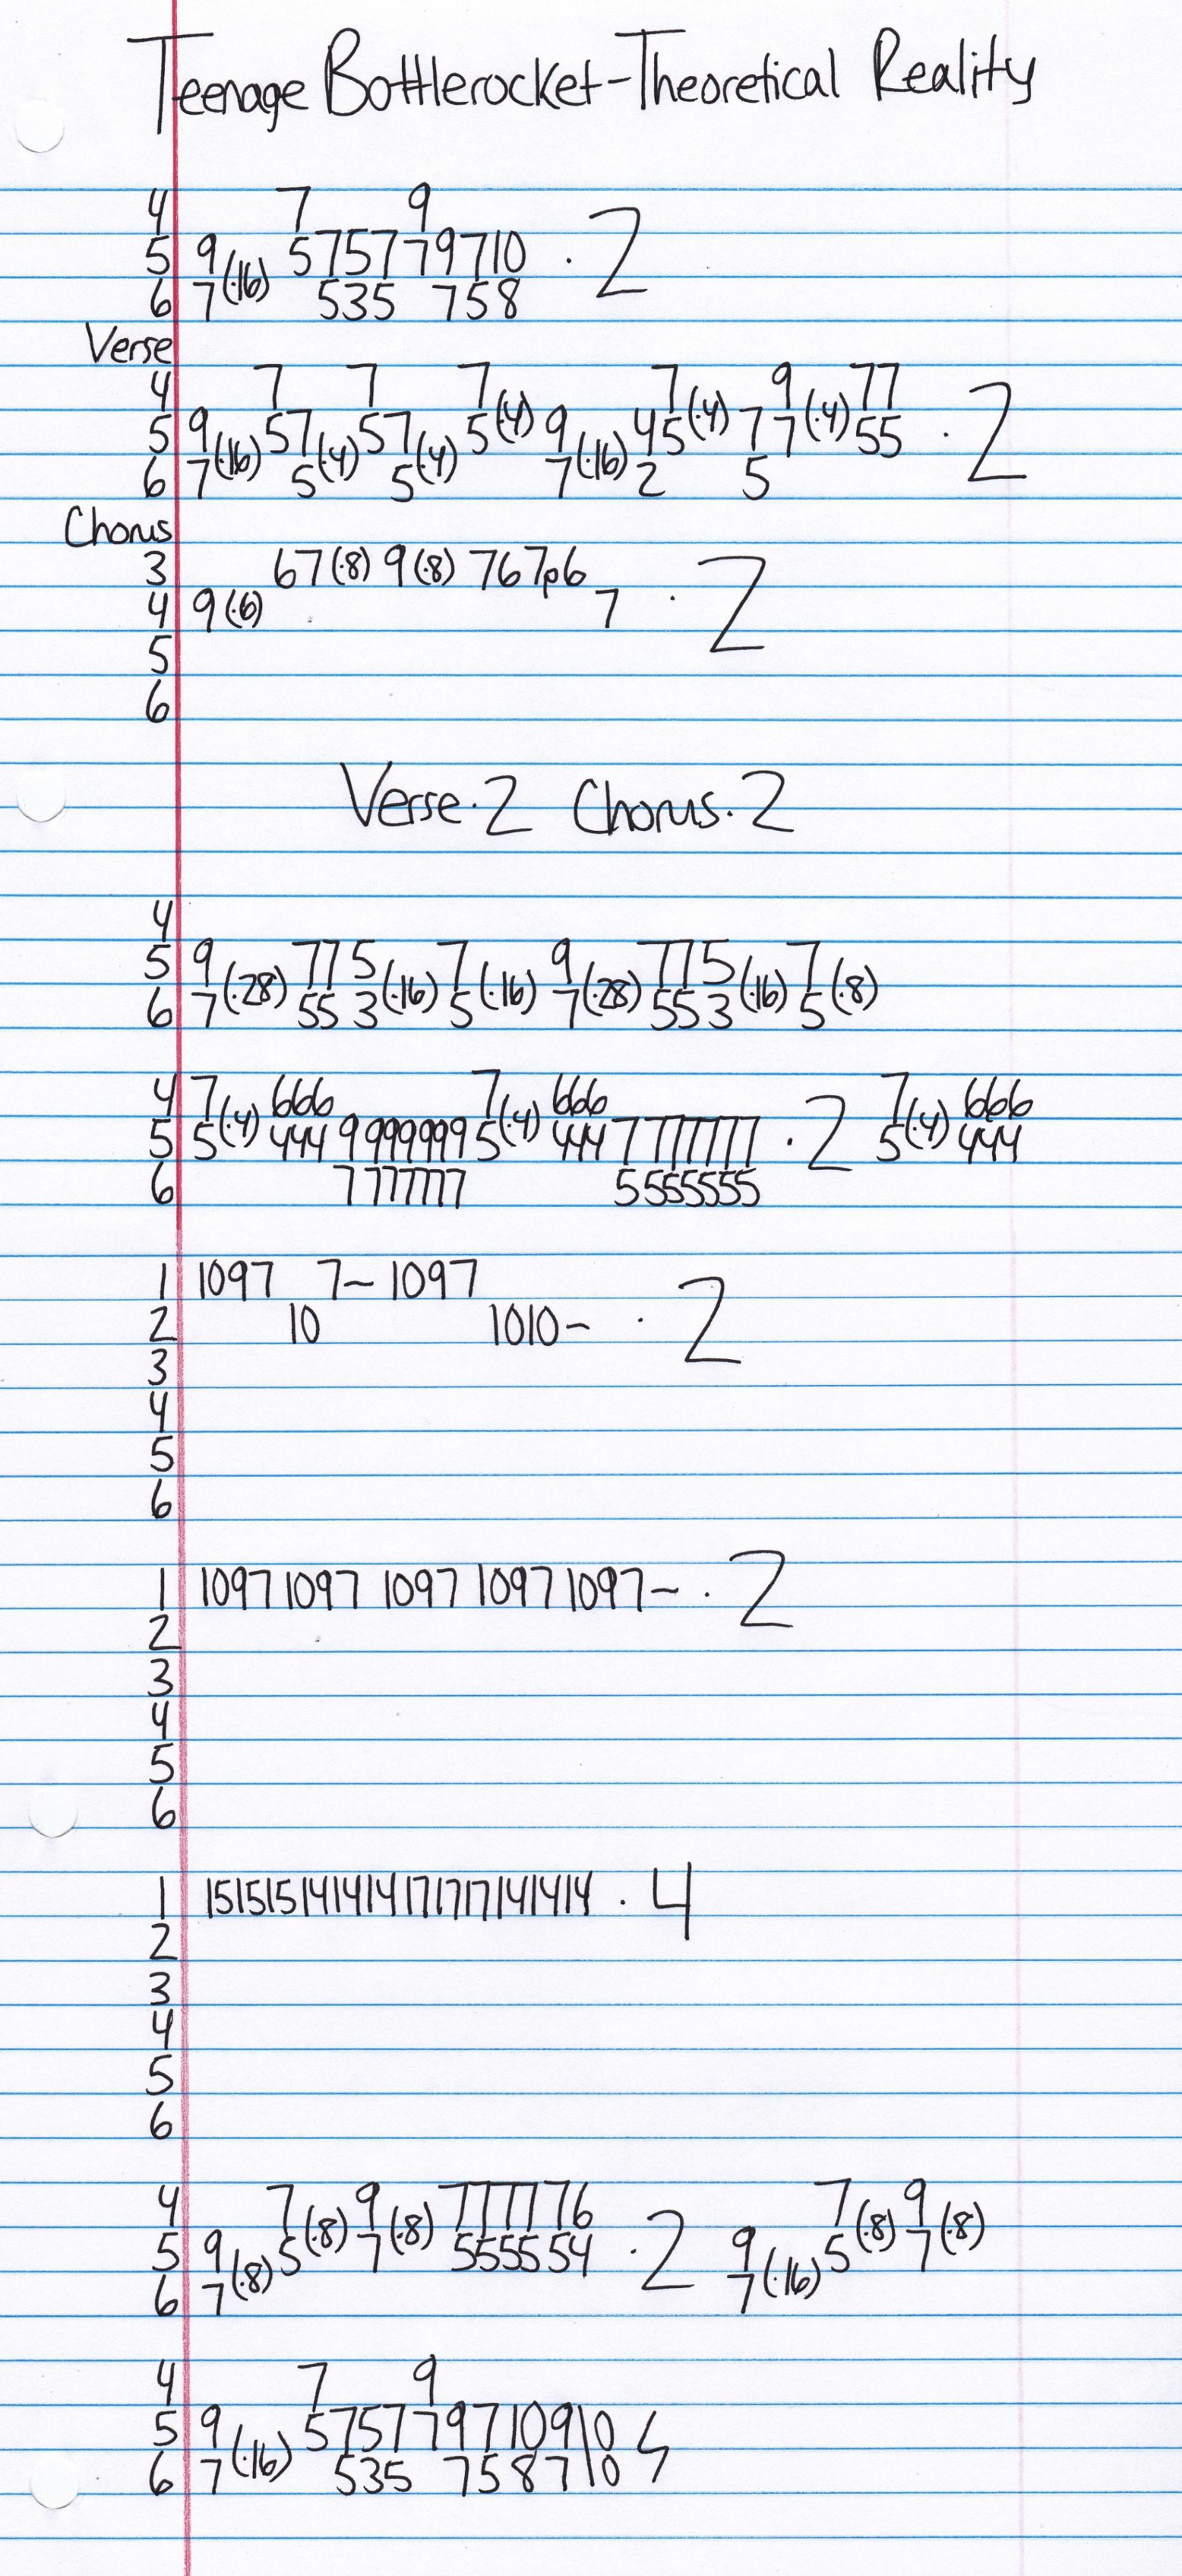 Teenage Bottlerocket-Theoretical Reality
4 7 9
5 9(·16) 5757797 10 · 2
6 7 535 758
Verse
4 7 7 7 7 9 77
5 9(·16) 57(·4) 57(·4) 5(·4) 9(·16) 45(·4) 7 7(·4) 55 · 2
6 7 5 5 7 2 5
Chorus
3 67(·8) 9(·8) 767p6
4 9(·6) 7 · 2
5
6
Verse·2 Chorus·2
4
5 9(·28) 77 5(·16) 7(·16) 9(·28) 77 5(·16) 7(·8)
6 7 55 3 5 7 55 3 5
4 7(·4) 666 7(·4) 666 7(·4) 666
5 5 444 9999999 5 444 7777777 · 2 5 444
6 7777777 5555555
1 1097 7~ 1097
2 10 1010~ · 2
3
4
5
6
1 1097 1097 1097 1097 1097~ · 2
2
3
4
5
6
1 151515141414171717141414 · 4
2
3
4
5
6
4 7(·8) 9(·8) 777776 7(·8) 9(·8)
5 9(·8) 5 7 555554 · 2 9(·16) 5 7
6 7 7
4 7 9
5 9(·16) 5757797 10 9\0
6 7 535 7587\0